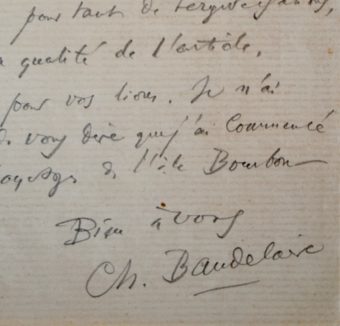 pour tant de tergiversations,
a qualité de l'article,
pour vos livres. Je n'ai
vous dire que j'ai commencé
de l'île Bourbon
Bien à vous
Ch. Baudelaire